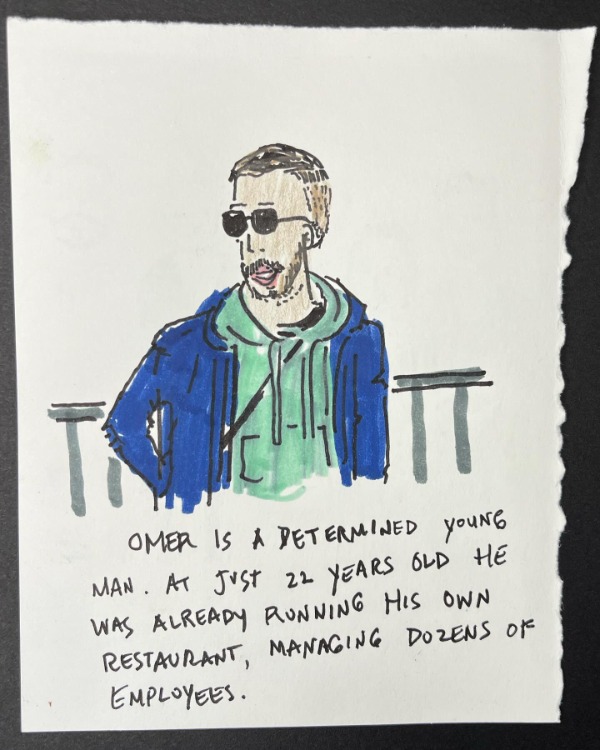 OMER IS A DETERMINED YOUNG
MAN. AT JUST 22 YEARS OLD HE
WAS ALREADY RUNNING HIS OWN
RESTAURANT, MANAGING DOZENS OF
EMPLOYEES.